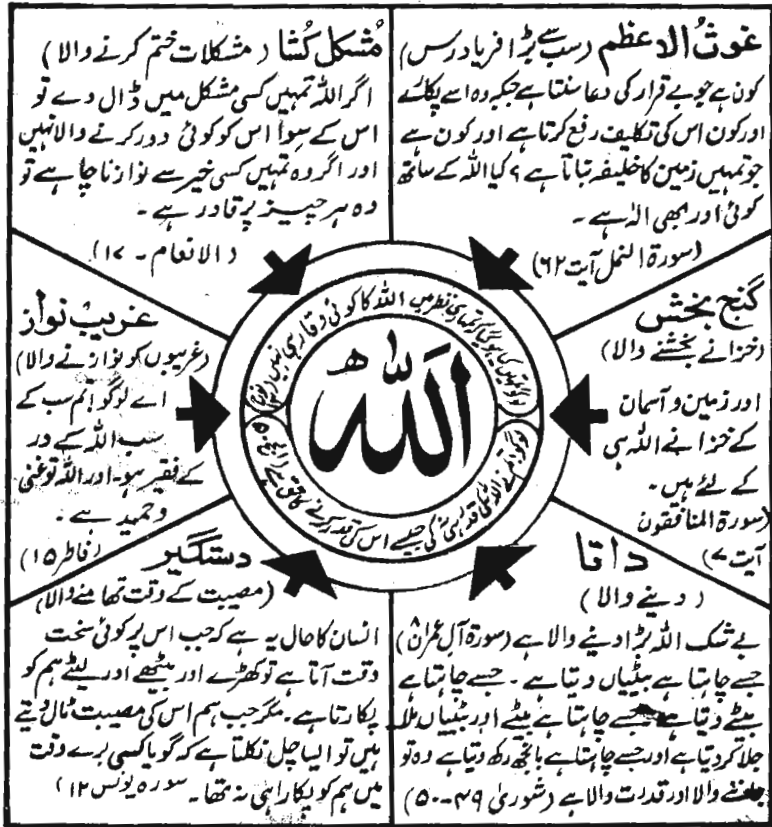 غوثُ الاعظم (سب سے بڑا فریاد رس)
کون ہے جو بے قرار کی دعا سنتا ہے جبکہ وہ اسے پکارے
اور کون اس کی تکلیف رفع کرتا ہے اور کون ہے
جو تمہیں زمین کا خلیفہ بناتا ہے؟ کیا اللہ کے ساتھ
کوئی اور بھی الٰہ ہے۔
(سورة النمل آیت ۶۲)
مُشکل کُشا (مشکلات ختم کرنے والا)
اگر اللہ تمہیں کسی مشکل میں ڈال دے تو
اس کے سوا اس کو کوئی دور کرنے والا نہیں
اور اگر وہ تمہیں کسی خیر سے نوازنا چاہے تو
وہ ہر چیز پر قادر ہے۔
(الانعام - ۱۷)
گنج بخش
(خزانے بخشنے والا)
اور زمین و آسمان
کے خزانے اللہ ہی
کے لئے ہیں۔
(سورة المنافقون
آیت ۷)
غریب نواز
(غریبوں کو نوازنے والا)
اے لوگو! تم سب کے
سب اللہ کے در
کے فقیر ہو۔ اور اللہ تو غنی
و حمید ہے۔
(فاطر ۱۵)
تمہیں کیا ہو گیا کہ تمہاری نظر میں اللہ کا کوئی وقار ہی نہیں
اللّٰہ
لوگو تم نے اللہ کی قدر ہی نہ کی جیسے اس کی قدر کرنے کا حق ہے
داتا
(دینے والا)
بے شک اللہ بڑا دینے والا ہے (سورة آل عمران ۸)
جسے چاہتا ہے بیٹیاں دیتا ہے۔ جسے چاہتا ہے
بیٹے دیتا ہے جسے چاہتا ہے بیٹے اور بیٹیاں ملا
جلا کر دیتا ہے اور جسے چاہتا ہے بانجھ رکھ دیتا ہے وہ تو
جاننے والا اور قدرت والا ہے (شوریٰ ۴۹-۵۰)
دستگیر
(مصیبت کے وقت تھامنے والا)
انسان کا حال یہ ہے کہ جب اس پر کوئی سخت
وقت آتا ہے تو کھڑے اور بیٹھے اور لیٹے ہم کو
پکارتا ہے۔ مگر جب ہم اس کی مصیبت ٹال دیتے
ہیں تو ایسا چل نکلتا ہے کہ گویا کسی برے وقت
میں ہم کو پکارا ہی نہ تھا۔ سورہ یونس ۱۲)